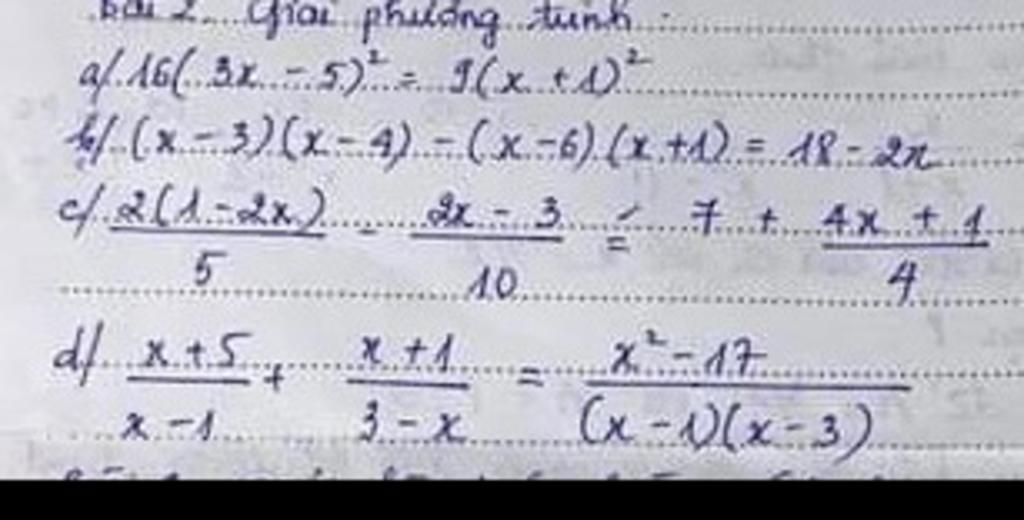 Bài 2. Giải phương trình
a/ 16(3x - 5)² = 9(x + 1)²
b/ (x - 3)(x - 4) - (x - 6)(x + 1) = 18 - 2x
c/ 2(1 - 2x)/5 - 2x - 3/10 = 7 + 4x + 1/4
d/ x + 5/x - 1 + x + 1/3 - x = x² - 17/(x - 1)(x - 3)